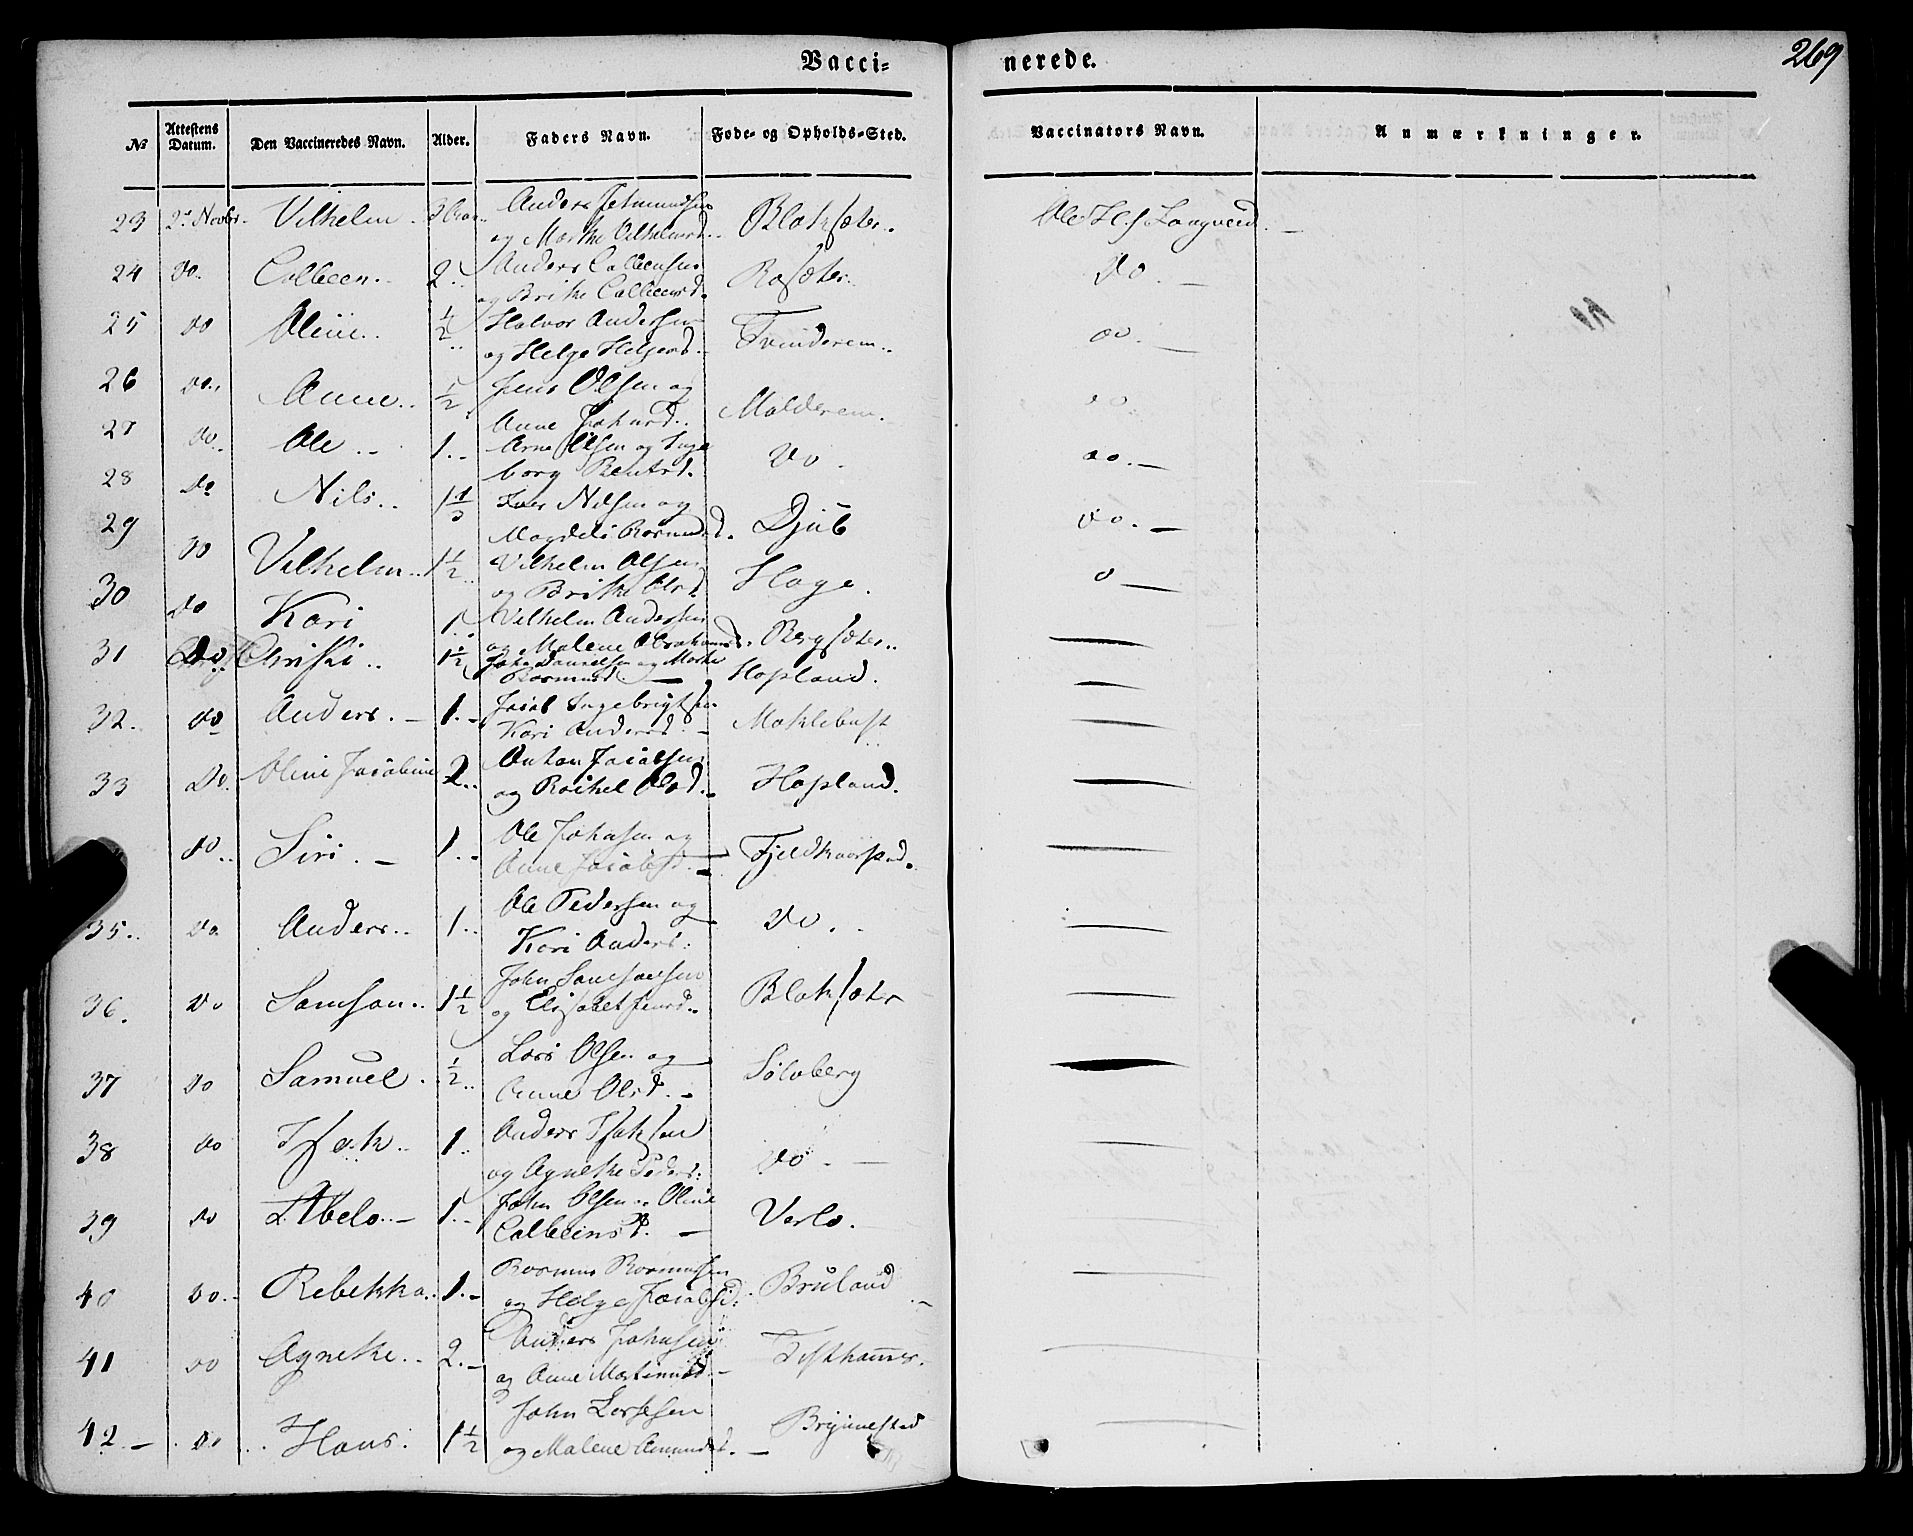 Vacci- nerede. 269
№ Attestens Datum. Den Vaccineredes Navn. Alder. Faders Navn. Føde- og Opholds-Sted. Vaccinators Navn. Anmærkninger.
23 2d Novbr. Vilhelm 3 Anders
og Marthe Vilhelmsd. Blaksæter. Ole Langved.
24 do. Colbeen. 2. Anders Colbensen
og Brithe Colbeensd. Rosæter. Do
25 do Oline. ½ Halvor Andersen
og Helge Helgesd. Tvinderem. do
26 do. Anne. ½ Jens Olsen og
Anne Johnsd. Molderem. do
27 do. Ole 1. Arne Olsen og Inge
borg Bentsd. Do. do.
28 Do Nils. 1 Iver Nilsen og
Magdeli Rasmusd. Djub do.
29 do Vilhelm. 1½ Vilhelm Olsen
og Brithe Olsd. Hage.
30 do Kari 1. Vilhelm Andersen
og Malene Abrahamsd. Bergsæter.
31 Do Christi. 1½ John Danielsen og Marthe
Rasmusd. Hopland.
32. do Anders. 1. Jacob Ingebrigtsen
Kari Andersd. Maklebust
33 Do. Oline Jacobine 2. Anton Jacobsen
og Rachel Olsd. Hopland.
do. Siri. 1. Ole Johnsen og
Anne Jacobsd. Fjeldkaarstad.
35. do. Anders. 1. Ole Pedersen og
Kari Anders: do.
36. do Samson. 1½ John Samsonsen
og Elisabet Jensd. Blaksæter
37 do Samuel. ½ Lars Olsen og
Anne Olsd. Sølvberg
38 do Isak. 1. Anders Isaksen
og Agnethe Peders: do.
39 do Abelo. 1. John Olsen Oline
Colbeinsd. Verlo.
40 do. Rebekka. 1. Rasmus Rasmussen
og Helge Jacobsd: Bruland
41 do Agnethe. 2. Anders Johnsen
og Anne Martinusd.
42. do. Hans. 1½ John Larsen
og Malene Amundsd. Brynnestad